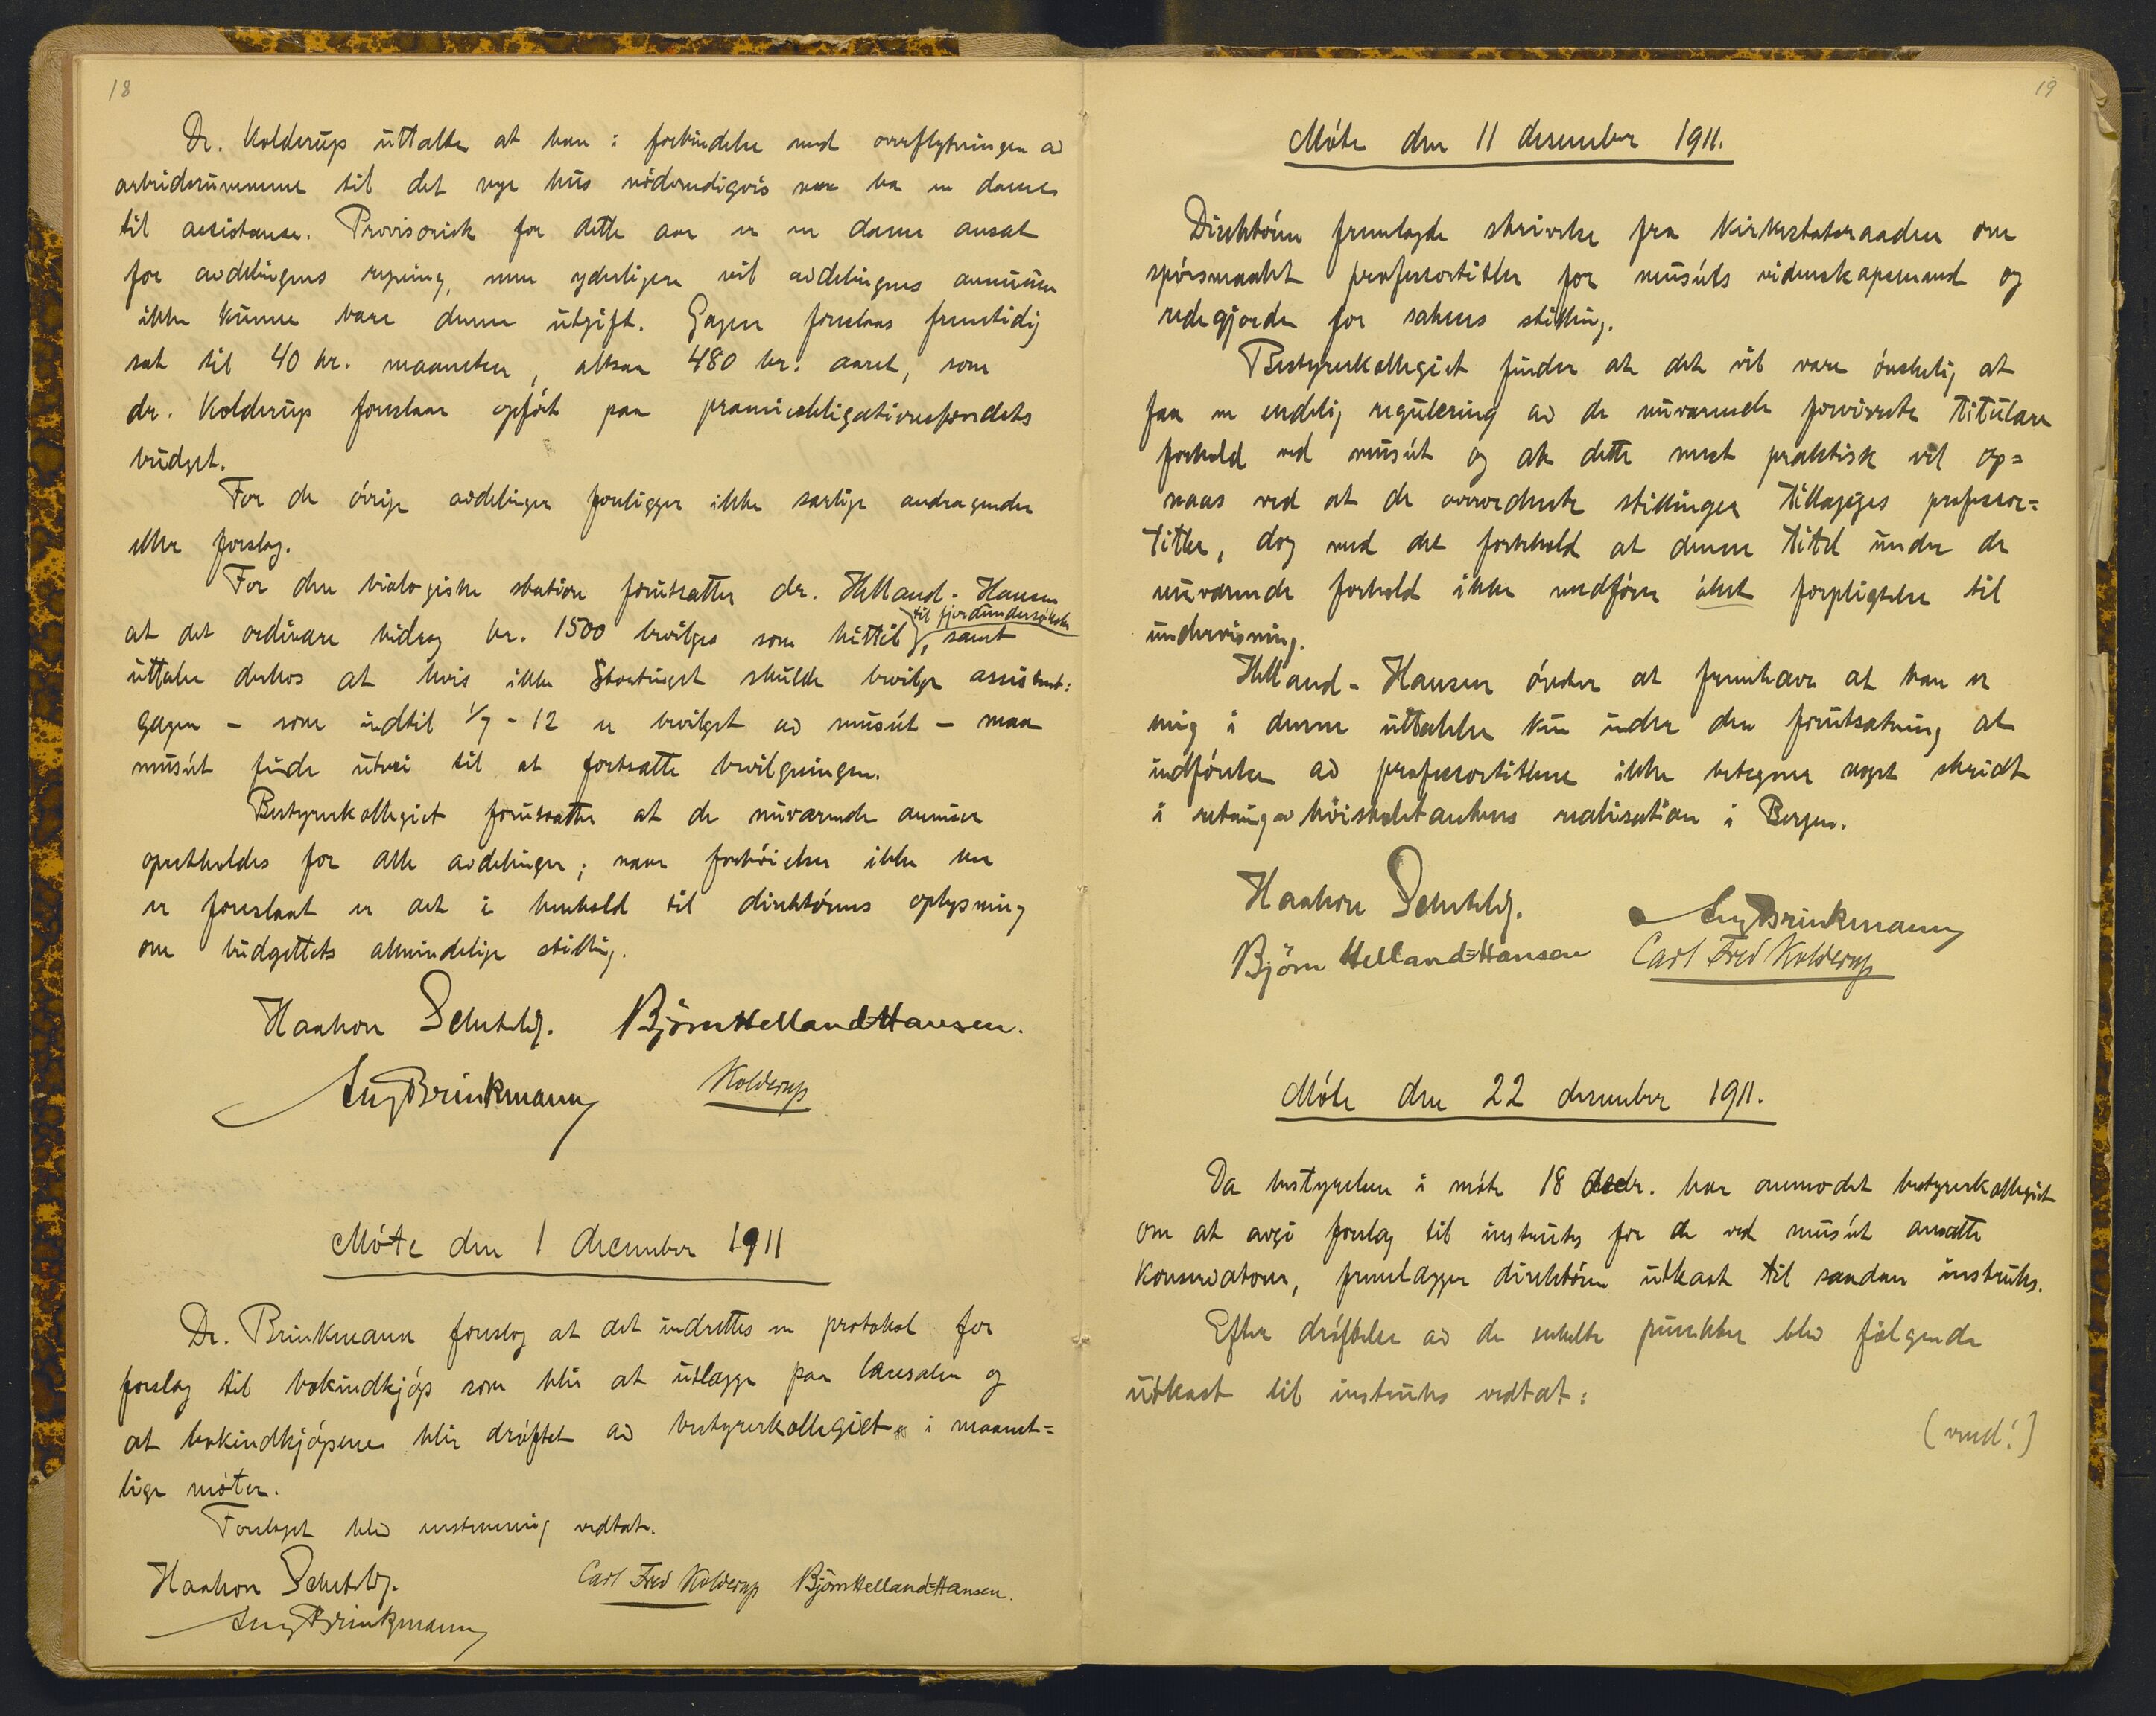 18
Dr. Kolderup uttalte at han i forbindelse med overflytningen av
arbeidsrummene til det nye hus nödvendigvis maa ha en dame
til assistanse. Provisorisk for dette aar er en dame ansat
for avdelingens regning, men yderligere vil avdelingens annuum
ikke kunne bære denne utgift. Gagen foreslaas fremtidig
sat til 40 kr. maaneden, altsaa 480 kr. aaret, som
dr. Kolderup foreslaar opfört paa præmieobligationsfondets
budget.
For de övrige avdelinger foreligger ikke særlige andragender
eller forslag.
For den biologiske station forutsætter dr. Helland-Hansen
at det ordinære bidrag kr. 1500 bevilges som hittil til fjordundersökelser, samt
uttaler derhos at hvis ikke Stortinget skulde bevilge assistent-
gagen – som indtil 1/7 – 12 er bevilget av muséet – maa
muséet finde utvei til at fortsætte bevilgningen.
Bestyrerkollegiet forutsætter at de nuværende annuer
opretholdes for alle avdelinger; naar forhöielser ikke her
er foreslaat er det i henhold til direktörens oplysning
om budgettets almindelige stilling.
Haakon Schetelig. Björn Helland-Hansen.
Aug Brinkmann Kolderup
Möte den 1 december 1911
Dr. Brinkmann foreslog at det indrettes en protokol for
forslag til bokindkjöp som blir at utlægge paa læsesalen og
at bokindkjöpene blir dröftet av bestyrerkollegiet i maanet-
lige möter.
Forslaget blev enstemmig vedtat.
Haakon Schetelig. Carl Fred Kolderup Björn Helland-Hansen.
Aug Brinkmann
19
Möte den 11 desember 1911.
Direktören fremlagde skrivelse fra Kirkestatsraaden om
spörsmaalet professortitler for muséets videnskapsmænd og
redegjorde for sakens stilling.
Bestyrerkollegiet finder at det vil være önskelig at
faa en endelig regulering av de nuværende forvirrede titulære
forhold ved muséet og at dette mest praktisk vil op-
naaes ved at de overordnete stillinger tillægges professor-
titler, dog med det forbehold at denne titel under de
nuværende forhold ikke medförer öket forpligtelse til
undervisning.
Helland-Hansen önsker at fremhæve at han er
enig i denne uttalelse kun under den forutsætning at
indförelsen av professortitlene ikke betegner noget skridt
i retning av höiskoletankens realisation i Bergen.
Haakon Schetelig. Aug Brinkmann
Björn Helland-Hansen Carl Fred Kolderup
Möte den 22 desember 1911.
Da bestyrelsen i möte 18 decbr. har anmodet bestyrerkollegiet
om at avgi forslag til instruks for de ved muséet ansatte
konservatorer, fremlægger direktören utkast til saadan instruks.
Efter dröftelse av de enkelte punkter blev fölgende
utkast til instruks vedtat:
(vend!)